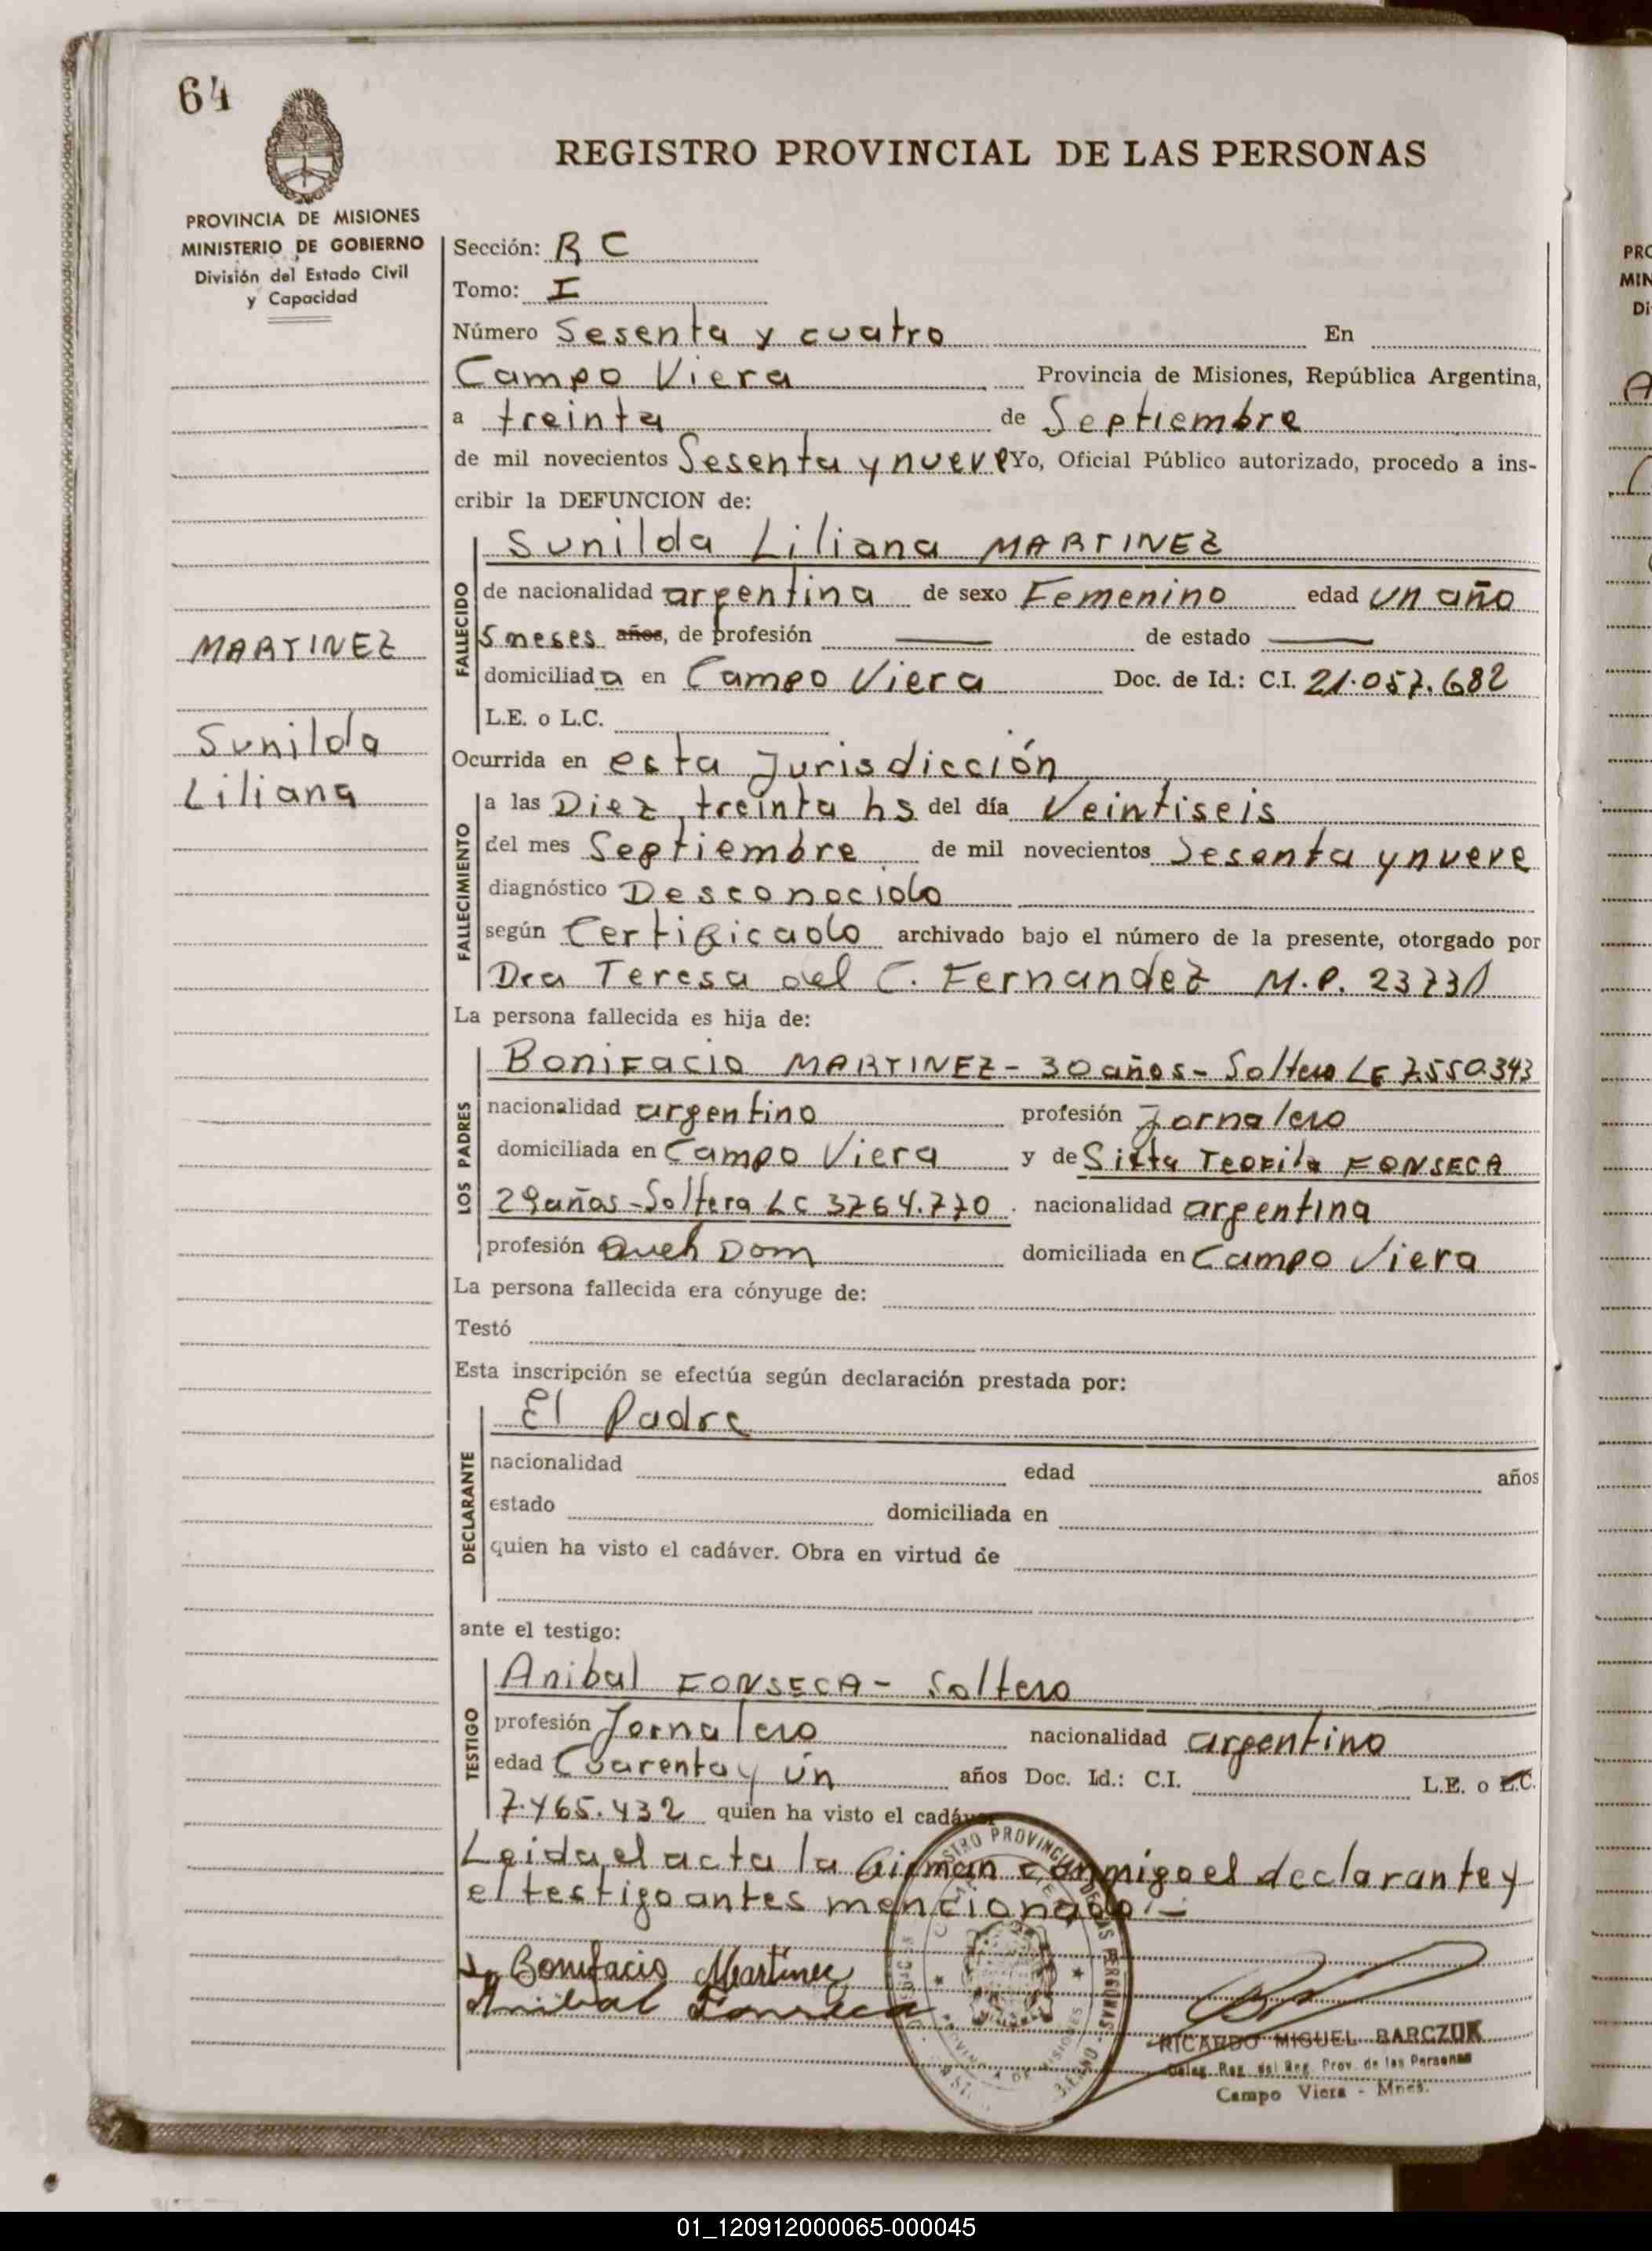 64
REGISTRO PROVINCIAL DE LAS PERSONAS
PROVINCIA DE MISIONES
MINISTERIO DE GOBIERNO
División del Estado Civil
y Capacidad
MARTINEZ
Sunilda
Liliana
Sección: R C
Tomo: I
Número Sesenta y cuatro En
Campo Viera Provincia de Misiones, República Argentina,
a treinta de Septiembre
de mil novecientos Sesenta y nueve Yo, Oficial Público autorizado, procedo a ins-
cribir la DEFUNCION de:
FALLECIDO
Sunilda Liliana MARTINEZ
de nacionalidad argentina de sexo Femenino edad un año
5 meses años, de profesión — de estado —
domiciliada en Campo Viera Doc. de Id.: C.I. 21.057.682
L.E. o L.C.
Ocurrida en esta Jurisdicción
FALLECIMIENTO
a las Diez, treinta hs del día Veintiseis
del mes Septiembre de mil novecientos Sesenta y nueve
diagnóstico Desconocido
según Certificado archivado bajo el número de la presente, otorgado por
Dra Teresa del C. Fernandez M.P. 23731
La persona fallecida es hija de:
LOS PADRES
Bonifacio MARTINEZ - 30 años - Soltero LE 7.550.343
nacionalidad argentino profesión Jornalero
domiciliada en Campo Viera y de Sixta Teofila FONSECA
29 años - Soltera LC 3764.770. nacionalidad argentina
profesión Queh Dom domiciliada en Campo Viera
La persona fallecida era cónyuge de:
Testó
Esta inscripción se efectúa según declaración prestada por:
DECLARANTE
El Padre
nacionalidad edad años
estado domiciliada en
quien ha visto el cadáver. Obra en virtud de
ante el testigo:
TESTIGO
Anibal FONSECA - Soltero
profesión Jornalero nacionalidad argentino
edad Cuarenta y ún años Doc. Id.: C.I. L.E. o L.C.
7.465.432 quien ha visto el cadáver
Leida el acta la firman conmigo el declarante y
el testigo antes mencionado.-
Bonifacio Martinez
Anibal Fonseca
RICARDO MIGUEL BARCZUK
Deleg. Reg. del Reg. Prov. de las Personas
Campo Viera - Mnes.
01_120912000065-000045